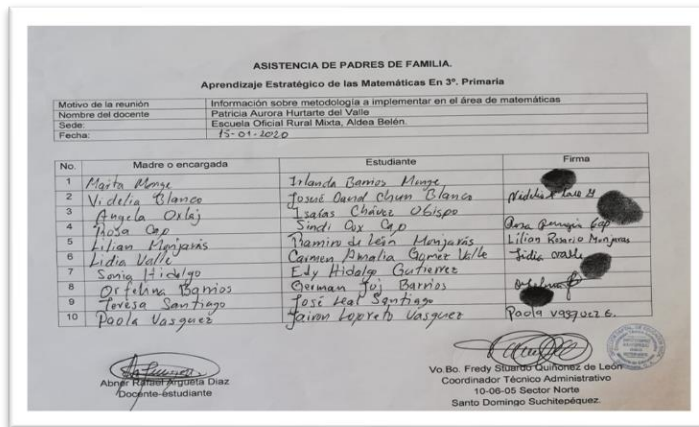 ASISTENCIA DE PADRES DE FAMILIA.
Aprendizaje Estratégico de las Matemáticas En 3º. Primaria
Motivo de la reunión Información sobre metodología a implementar en el área de matemáticas
Nombre del docente Patricia Aurora Hurtarte del Valle
Sede: Escuela Oficial Rural Mixta, Aldea Belén.
Fecha: 15-01-2020
No. Madre o encargada Estudiante Firma
1 Marta Monge Irlanda Barrios Monge
2 Videlia Blanco Josué David Chun Blanco
3 Angela Oxlaj Isaías Chávez Obispo
4 Rosa Cap Sindi Cux Cap Rosa Cap
5 Lilian Monjarás Ramiro de León Monjarás Lilian Rosario Monjaras
6 Lidia Valle Carmen Amalia Gomez Valle Lidia Valle
7 Sonia Hidalgo Edy Hidalgo Gutierrez
8 Orfelina Barrios German Barrios
9 Teresa Santiago José Leal Santiago
10 Paola Vasquez Vasquez Paola Vasquez
Abner Rafael Argueta Diaz
Docente-estudiante
Vo.Bo. Fredy Stuardo Quiñonez de León
Coordinador Técnico Administrativo
10-06-05 Sector Norte
Santo Domingo Suchitepéquez.